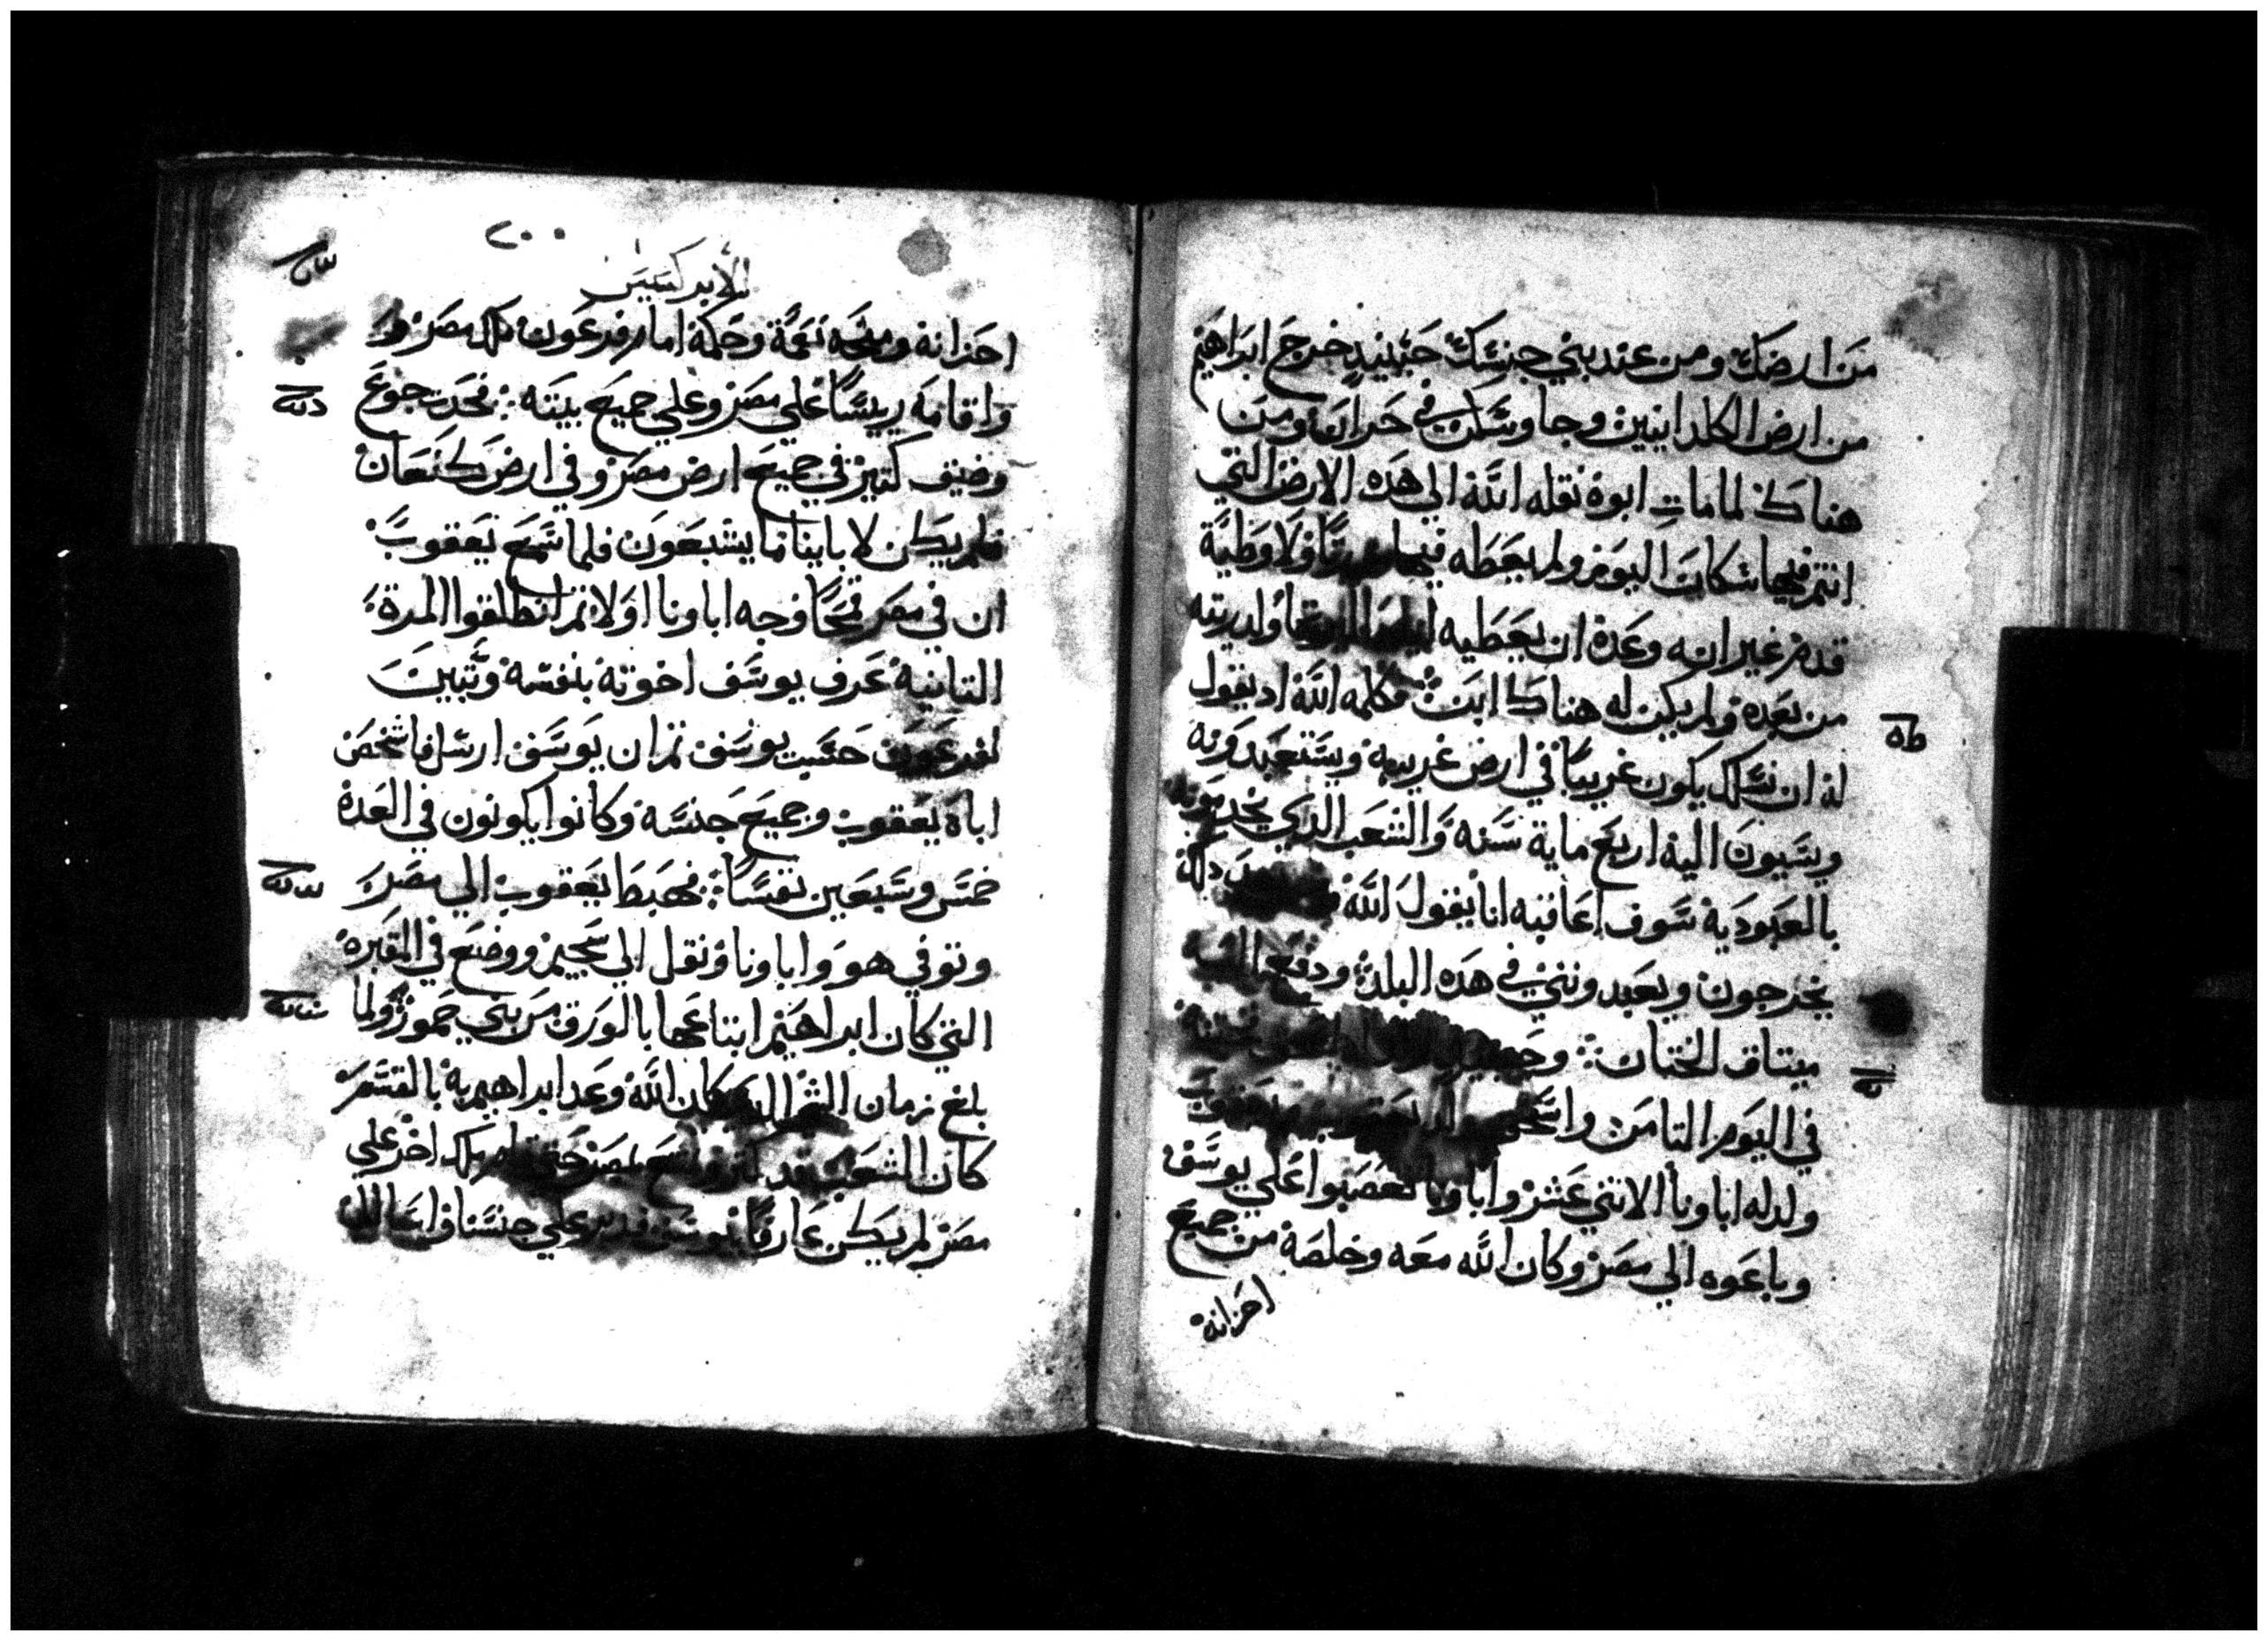 من ارضك ومن عند بني جنسك حينيد خرج ابراهيم
من ارض الكلدانيين وجا وسكن في حران ومن
هناك لما مات ابوه نقله الله الي هده الارض التي
انتم فيها سكان اليوم ولم يعطه فيها ولا وطية
قدم غير انه وعده ان يعطيه ولدريته
من بعده ولم يكن له هناك ابن فكلمه الله اد يقول
له ان نسلك يكون غريبا في ارض غريبه ويستعبدونه
ويسيون اليه اربع ماية سنه والشعب الدي يخدمونه
بالعبودية سوف اعاقبه انا يقول الله
يخرجون ويعبدونني في هده البلد ودفع اليه
ميتاق الختان
في اليوم التامن
ولد له اباونا الاتني عشر واباونا تعصبوا علي يوسف
وباعوه الي مصر وكان الله معه وخلصه من جميع
احزانه
٢٠٠
الابركسيس
احزانه ومنحه نعمة وحكمة امام فرعون ملك مصر
واقامه رييسا علي مصر وعلي جميع بيته فحدت جوع
وضيق كتير في جميع ارض مصر وفي ارض كنعان
فلم يكن لاباينا ما يشبعون فلما سمع يعقوب
ان في مصر قمحا وجه اباونا اولا تم انطلقوا المرة
التانية عرف يوسف اخوته بنفسه وتبين
لفرعون جنس يوسف تم ان يوسف ارسل فاشخص
اباه يعقوب وجميع جنسه وكانوا يكونون في العدة
خمس وسبعين نفسا فهبط يعقوب الي مصر
وتوفي هو واباونا ونقل الي سجيم ووضع في المقبره
التي كان ابراهيم ابتاعها بالورق من بني حمور ولما
بلغ زمان كان الله وعد ابراهيم به بالقسم
كان الشعب قد بمصر حتي ملك اخر علي
مصر لم يكن عارفا علي جنسنا